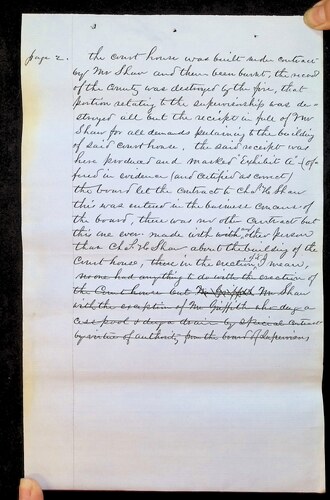 page 2. the Court house was built under contract
by Mr Shaw and there been burnt, the record
of the County was destroyed by the fire, that
portion relating to the supervisorship was de-
stroyed all but the receipt in full of Mr
Shaw for all demands pertaining to the building
of said court house. the said receipt was
here produced and marked "Exhibit A" & of-
fered in evidence (and certified as correct)
the board let the contract to Chas H Shaw
this was entered in the business of
the board, there was no other contract but
this one ever made with other person
than Chas H Shaw about the building of the
Court house, in the erection I mean,
no one had anything to do with the erection of
the Court house but Mr Griffith Mr Shaw
with the exception of Mr Griffith who dug a
cess pool & dug a drain by special contract
by virtue of authority from the board of Supervisors